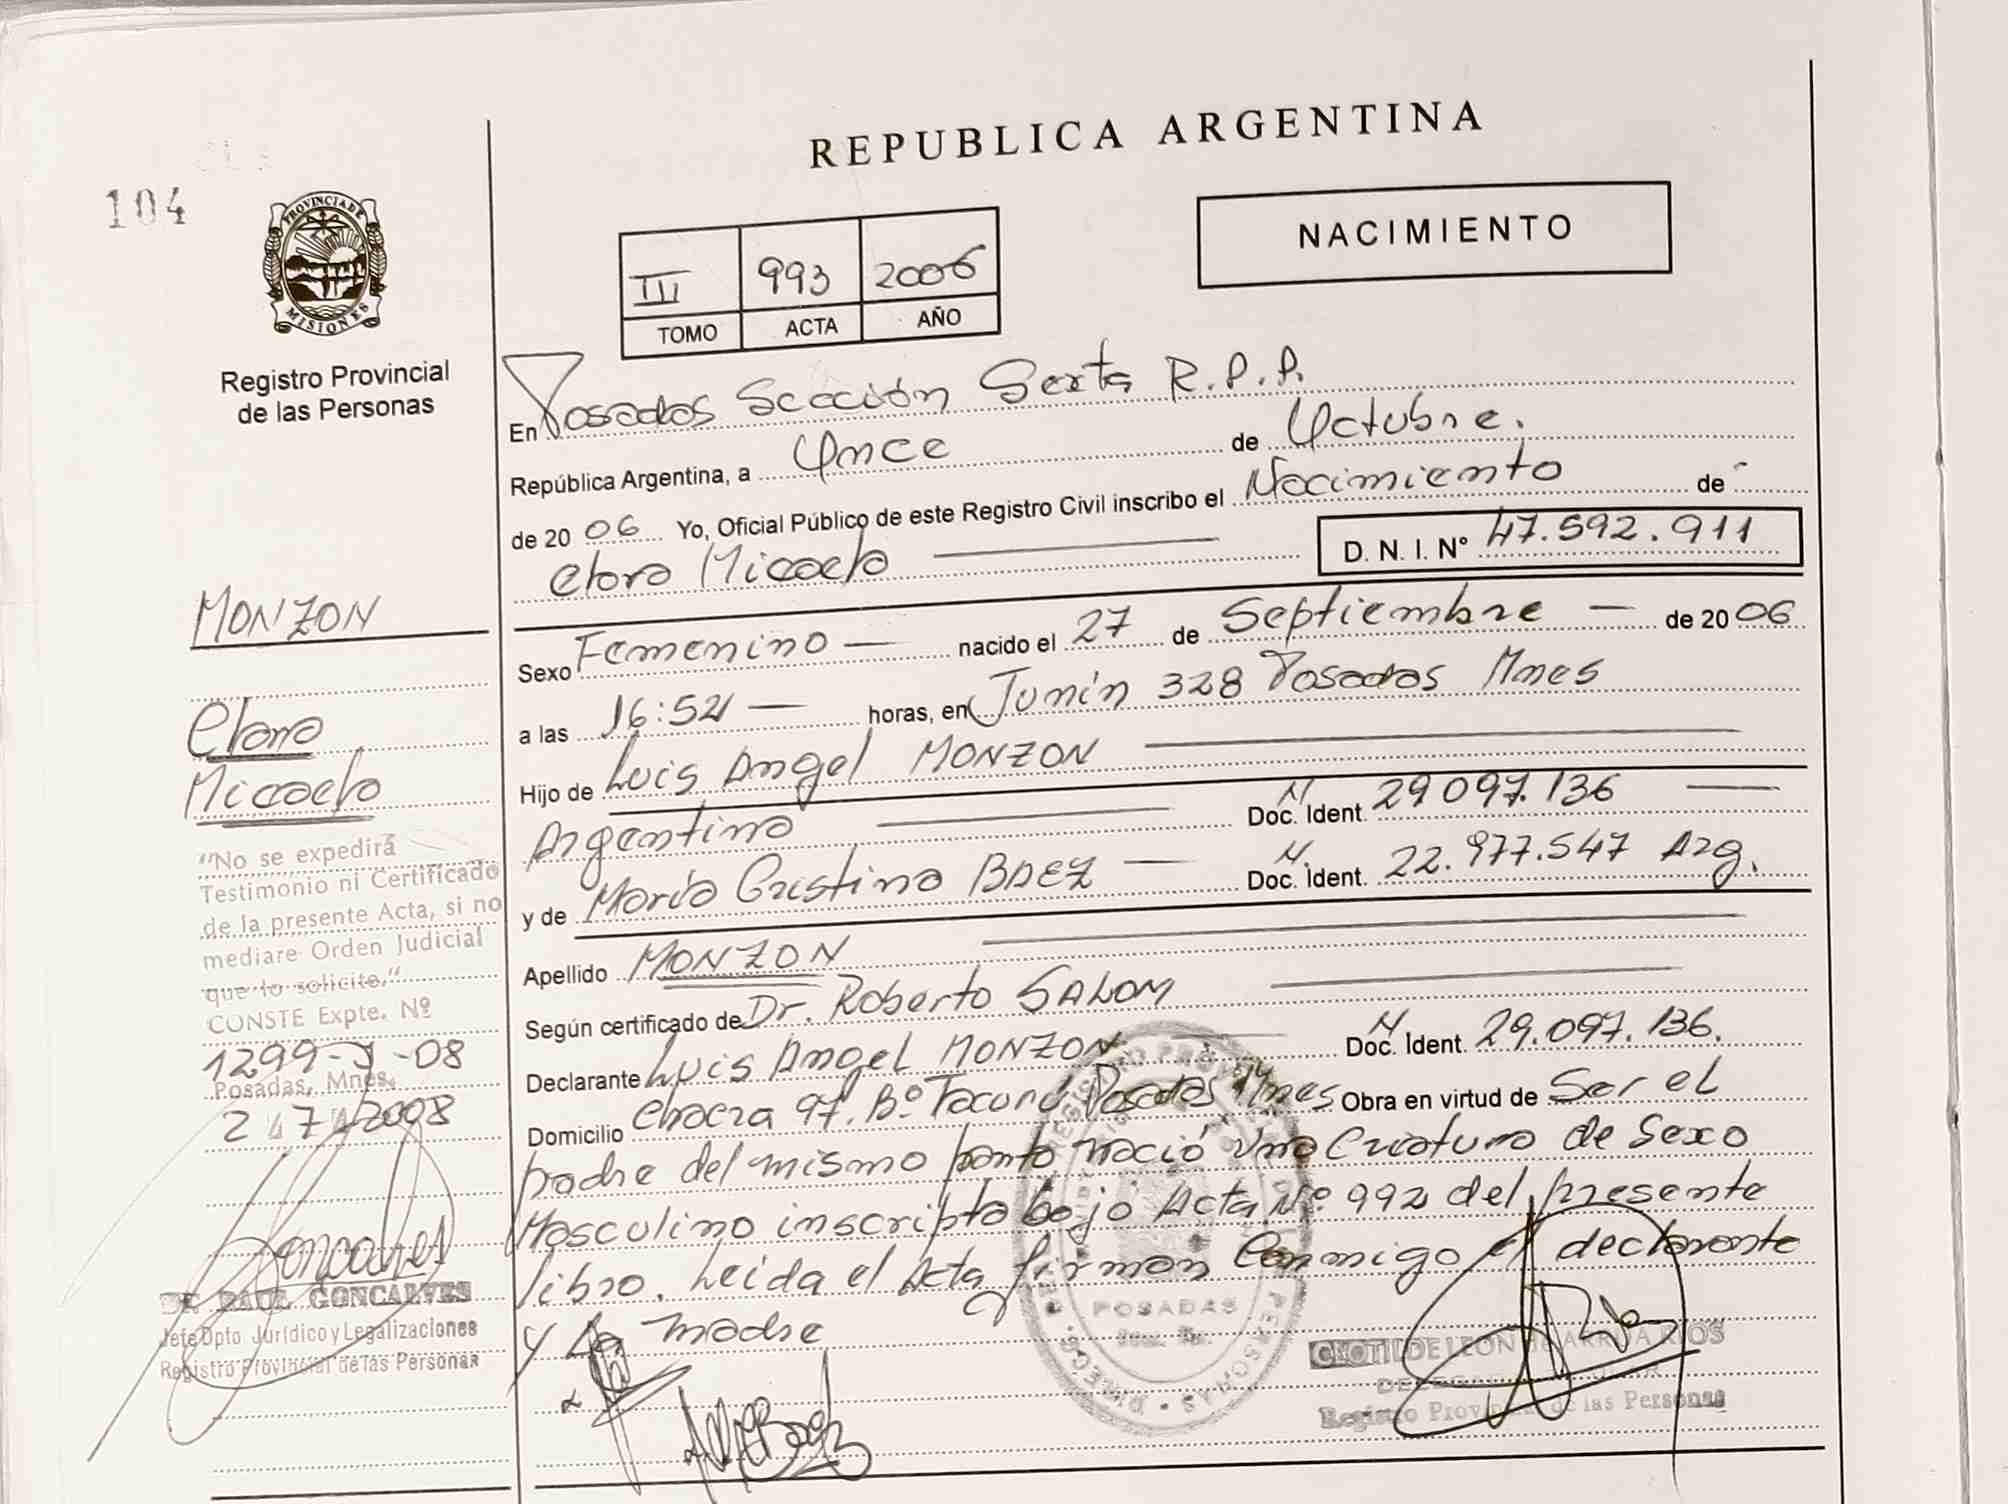 REPUBLICA ARGENTINA
104
PROVINCIA DE
MISIONES
Registro Provincial
de las Personas
NACIMIENTO
III 993 2006
TOMO ACTA AÑO
En Posadas Sección Sexta R.P.P.
República Argentina, a Once de Octubre.
de 2006 Yo, Oficial Público de este Registro Civil inscribo el Nacimiento de
Clara Micaela D. N. I. Nº 47.592.911
Sexo Femenino nacido el 27 de Septiembre de 2006
a las 16:52 horas, en Junín 328 Posadas Mnes
Hijo de Luis Angel MONZON
Argentino Doc. Ident. 29 097.136
y de María Cristina BAEZ Doc. Ident. 22.977.547 Arg.
Apellido MONZON
Según certificado de Dr. Roberto SALOM
Declarante Luis Angel MONZON Doc. Ident. 29.097.136.
Domicilio Chacra 97. Bº Tacurú Posadas Mnes Obra en virtud de Ser el
padre del mismo parto nació una Criatura de Sexo
Masculino inscripto bajo Acta Nº 992 del presente
libro. Leida el Acta firman Conmigo el declarante
y la madre
MONZON
Clara
Micaela
"No se expedirá
Testimonio ni Certificado
de la presente Acta, si no
mediare Orden Judicial
que lo solicite."
CONSTE Expte. Nº
1299-J-08
Posadas, Mnes.
2008
Goncalves
DR RAUL GONCALVES
Jefe Dpto Jurídico y Legalizaciones
Registro Provincial de las Personas
POSADAS
PERSONAS
CLOTILDE LEON de
Registro Provincial de las Personas